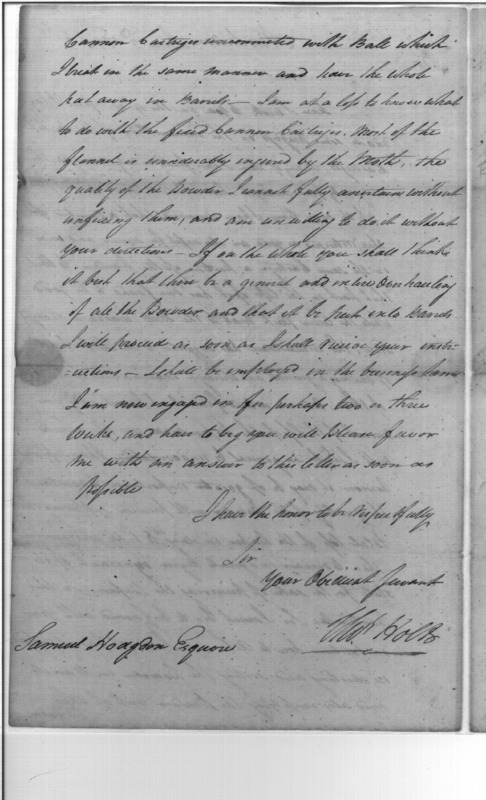 Cannon Cartriges unconnected with Ball which
I treat in the same manner and have the whole
put away in Barrels — I am at a loss to know what
to do with the fixed Cannon Cartriges. Most of the
flannel is considerably injured by the Moth, the
quality of the Powder I cannot fully ascertain without
unfixing them, and am unwilling to do it without
your directions — If on the whole you shall think
it best that there be a general and overhauling
of all the Powder and that it be put into Barrels
I will proceed as soon as I shall receive your instr-
-uctions — I shall be employed in the business
I am now engaged in for perhaps two or three
Weeks, and have to beg you will please favor
me with an answer to this letter as soon as
Possible
I have the honor to be respectfully
Sir
Your Obedient Servant
Tho.s Holt
Samuel Hodgdon Esquire